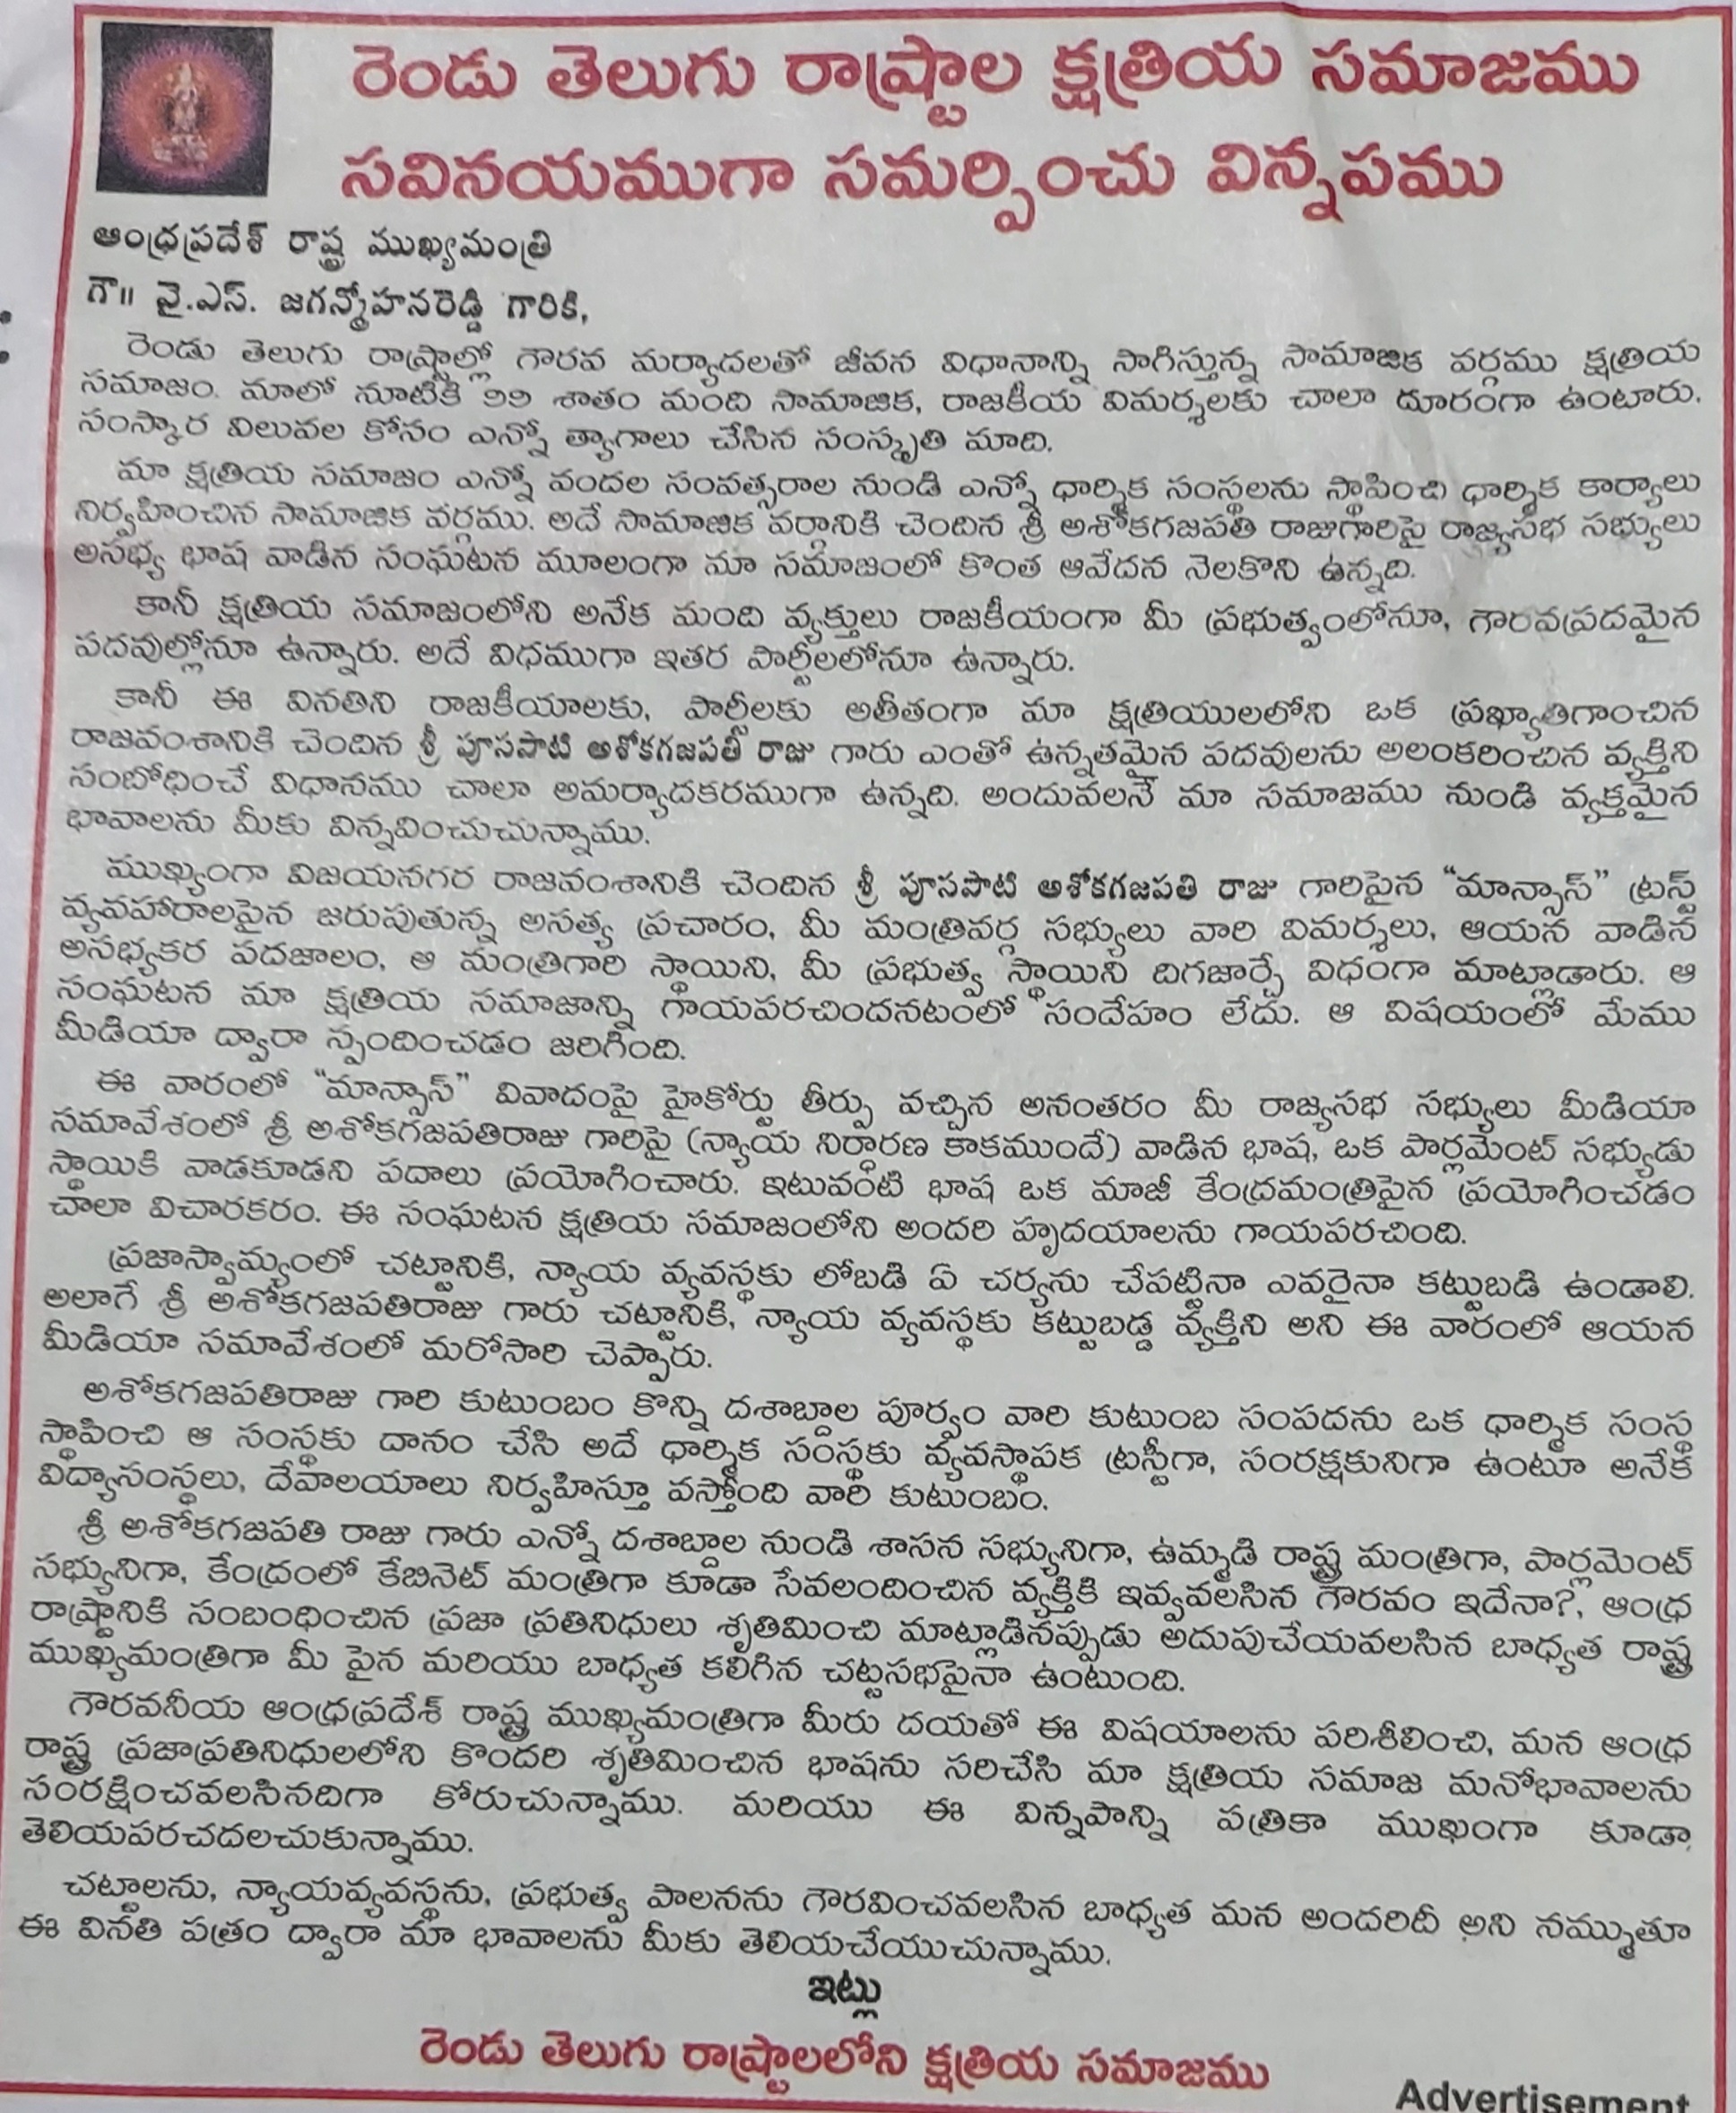 రెండు తెలుగు రాష్ట్రాల క్షత్రియ సమాజము
సవినయముగా సమర్పించు విన్నపము
ఆంధ్రప్రదేశ్ రాష్ట్ర ముఖ్యమంత్రి
గౌ॥ వై.ఎస్. జగన్మోహనరెడ్డి గారికి,
రెండు తెలుగు రాష్ట్రాల్లో గౌరవ మర్యాదలతో జీవన విధానాన్ని సాగిస్తున్న సామాజిక వర్గము క్షత్రియ
సమాజం. మాలో నూటికి 99 శాతం మంది సామాజిక, రాజకీయ విమర్శలకు చాలా దూరంగా ఉంటారు.
సంస్కార విలువల కోసం ఎన్నో త్యాగాలు చేసిన సంస్కృతి మాది.
మా క్షత్రియ సమాజం ఎన్నో వందల సంవత్సరాల నుండి ఎన్నో ధార్మిక సంస్థలను స్థాపించి ధార్మిక కార్యాలు
నిర్వహించిన సామాజిక వర్గము. అదే సామాజిక వర్గానికి చెందిన శ్రీ అశోకగజపతి రాజుగారిపై రాజ్యసభ సభ్యులు
అసభ్య భాష వాడిన సంఘటన మూలంగా మా సమాజంలో కొంత ఆవేదన నెలకొని ఉన్నది.
కానీ క్షత్రియ సమాజంలోని అనేక మంది వ్యక్తులు రాజకీయంగా మీ ప్రభుత్వంలోనూ, గౌరవప్రదమైన
పదవుల్లోనూ ఉన్నారు. అదే విధముగా ఇతర పార్టీలలోనూ ఉన్నారు.
కానీ ఈ వినతిని రాజకీయాలకు, పార్టీలకు అతీతంగా మా క్షత్రియులలోని ఒక ప్రఖ్యాతిగాంచిన
రాజవంశానికి చెందిన శ్రీ పూసపాటి అశోకగజపతి రాజు గారు ఎంతో ఉన్నతమైన పదవులను అలంకరించిన వ్యక్తిని
సంబోధించే విధానము చాలా అమర్యాదకరముగా ఉన్నది. అందువలనే మా సమాజము నుండి వ్యక్తమైన
భావాలను మీకు విన్నవించుచున్నాము.
ముఖ్యంగా విజయనగర రాజవంశానికి చెందిన శ్రీ పూసపాటి అశోకగజపతి రాజు గారిపైన “మాన్సాస్” ట్రస్ట్
వ్యవహారాలపైన జరుపుతున్న అసత్య ప్రచారం, మీ మంత్రివర్గ సభ్యులు వారి విమర్శలు, ఆయన వాడిన
అసభ్యకర పదజాలం, ఆ మంత్రిగారి స్థాయిని, మీ ప్రభుత్వ స్థాయిని దిగజార్చే విధంగా మాట్లాడారు. ఆ
సంఘటన మా క్షత్రియ సమాజాన్ని గాయపరచిందనటంలో సందేహం లేదు. ఆ విషయంలో మేము
మీడియా ద్వారా స్పందించడం జరిగింది.
ఈ వారంలో “మాన్సాస్” వివాదంపై హైకోర్టు తీర్పు వచ్చిన అనంతరం మీ రాజ్యసభ సభ్యులు మీడియా
సమావేశంలో శ్రీ అశోకగజపతిరాజు గారిపై (న్యాయ నిర్ధారణ కాకముందే) వాడిన భాష, ఒక పార్లమెంట్ సభ్యుడు
స్థాయికి వాడకూడని పదాలు ప్రయోగించారు. ఇటువంటి భాష ఒక మాజీ కేంద్రమంత్రిపైన ప్రయోగించడం
చాలా విచారకరం. ఈ సంఘటన క్షత్రియ సమాజంలోని అందరి హృదయాలను గాయపరచింది.
ప్రజాస్వామ్యంలో చట్టానికి, న్యాయ వ్యవస్థకు లోబడి ఏ చర్యను చేపట్టినా ఎవరైనా కట్టుబడి ఉండాలి.
అలాగే శ్రీ అశోకగజపతిరాజు గారు చట్టానికి, న్యాయ వ్యవస్థకు కట్టుబడ్డ వ్యక్తిని అని ఈ వారంలో ఆయన
మీడియా సమావేశంలో మరోసారి చెప్పారు.
అశోకగజపతిరాజు గారి కుటుంబం కొన్ని దశాబ్దాల పూర్వం వారి కుటుంబ సంపదను ఒక ధార్మిక సంస్థ
స్థాపించి ఆ సంస్థకు దానం చేసి అదే ధార్మిక సంస్థకు వ్యవస్థాపక ట్రస్టీగా, సంరక్షకునిగా ఉంటూ అనేక
విద్యాసంస్థలు, దేవాలయాలు నిర్వహిస్తూ వస్తోంది వారి కుటుంబం.
శ్రీ అశోకగజపతి రాజు గారు ఎన్నో దశాబ్దాల నుండి శాసన సభ్యునిగా, ఉమ్మడి రాష్ట్ర మంత్రిగా, పార్లమెంట్
సభ్యునిగా, కేంద్రంలో కేబినెట్ మంత్రిగా కూడా సేవలందించిన వ్యక్తికి ఇవ్వవలసిన గౌరవం ఇదేనా?, ఆంధ్ర
రాష్ట్రానికి సంబంధించిన ప్రజా ప్రతినిధులు శృతిమించి మాట్లాడినప్పుడు అదుపుచేయవలసిన బాధ్యత రాష్ట్ర
ముఖ్యమంత్రిగా మీ పైన మరియు బాధ్యత కలిగిన చట్టసభపైనా ఉంటుంది.
గౌరవనీయ ఆంధ్రప్రదేశ్ రాష్ట్ర ముఖ్యమంత్రిగా మీరు దయతో ఈ విషయాలను పరిశీలించి, మన ఆంధ్ర
రాష్ట్ర ప్రజాప్రతినిధులలోని కొందరి శృతిమించిన భాషను సరిచేసి మా క్షత్రియ సమాజ మనోభావాలను
సంరక్షించవలసినదిగా కోరుచున్నాము. మరియు ఈ విన్నపాన్ని పత్రికా ముఖంగా కూడా
తెలియపరచదలచుకున్నాము.
చట్టాలను, న్యాయవ్యవస్థను, ప్రభుత్వ పాలనను గౌరవించవలసిన బాధ్యత మన అందరిదీ అని నమ్ముతూ
ఈ వినతి పత్రం ద్వారా మా భావాలను మీకు తెలియచేయుచున్నాము.
ఇట్లు
రెండు తెలుగు రాష్ట్రాలలోని క్షత్రియ సమాజము
Advertisement